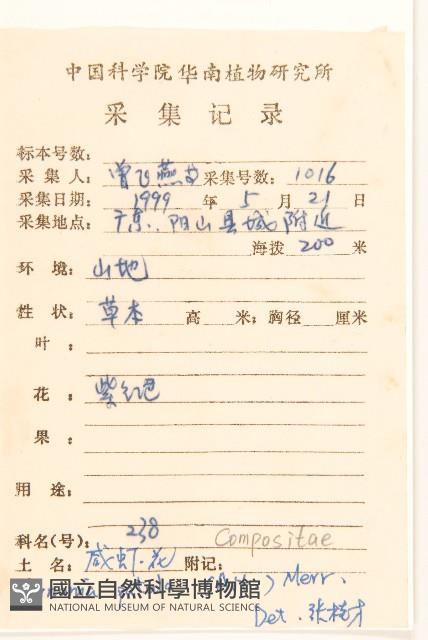 中国科学院华南植物研究所
采集记录
标本号数：
采集人：曾飞燕 采集号数：1016
采集日期：1999 年 5 月 21 日
采集地点：广东、阳山县城附近
海拨 200 米
环境：山地
性状：草本 高 米；胸径 厘米
叶：
花：紫红色
果：
用途：
科名(号)：238 Compositae
土名：咸虾花 附记：
) Merr.
國立自然科學博物館
NATIONAL MUSEUM OF NATURAL SCIENCE
Det.